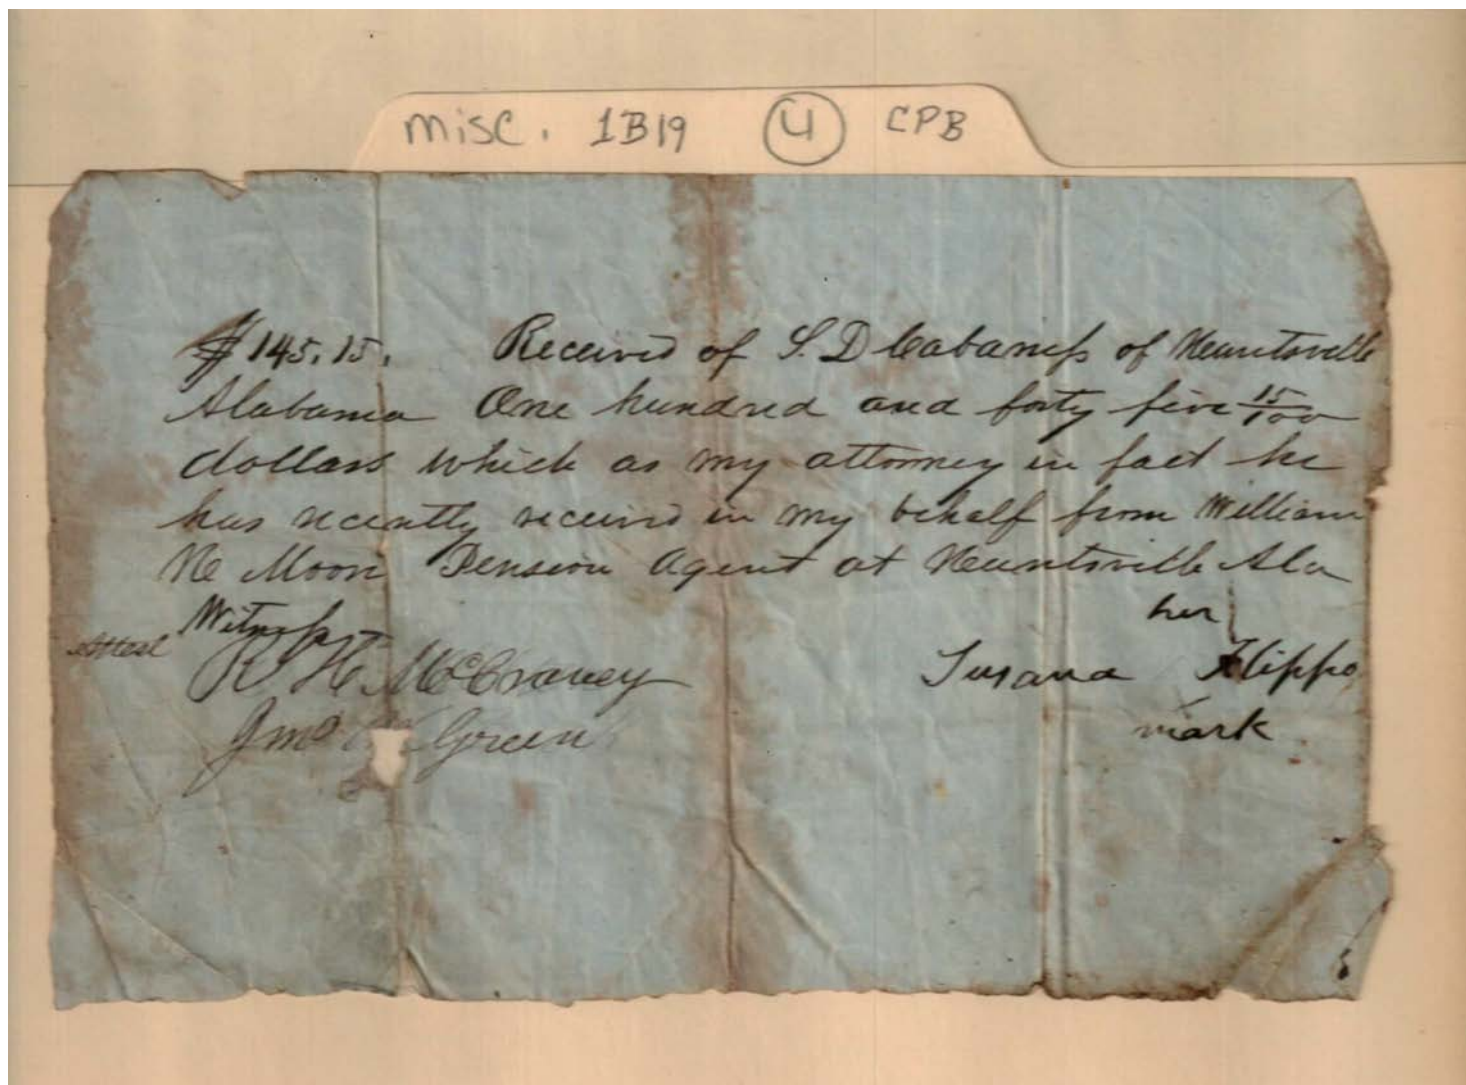 misc. 1B19 4 CPB
$145.15. Received of S. D Cabaness of Huntsville
Alabama One hundred and forty five 15/100
dollars which as my attorney in fact he
has recently received in my behalf from William
H Moon Pension Agent at Huntsville Ala
Witness her
Attest R H McCraney Susana Flippo
Jno Green mark